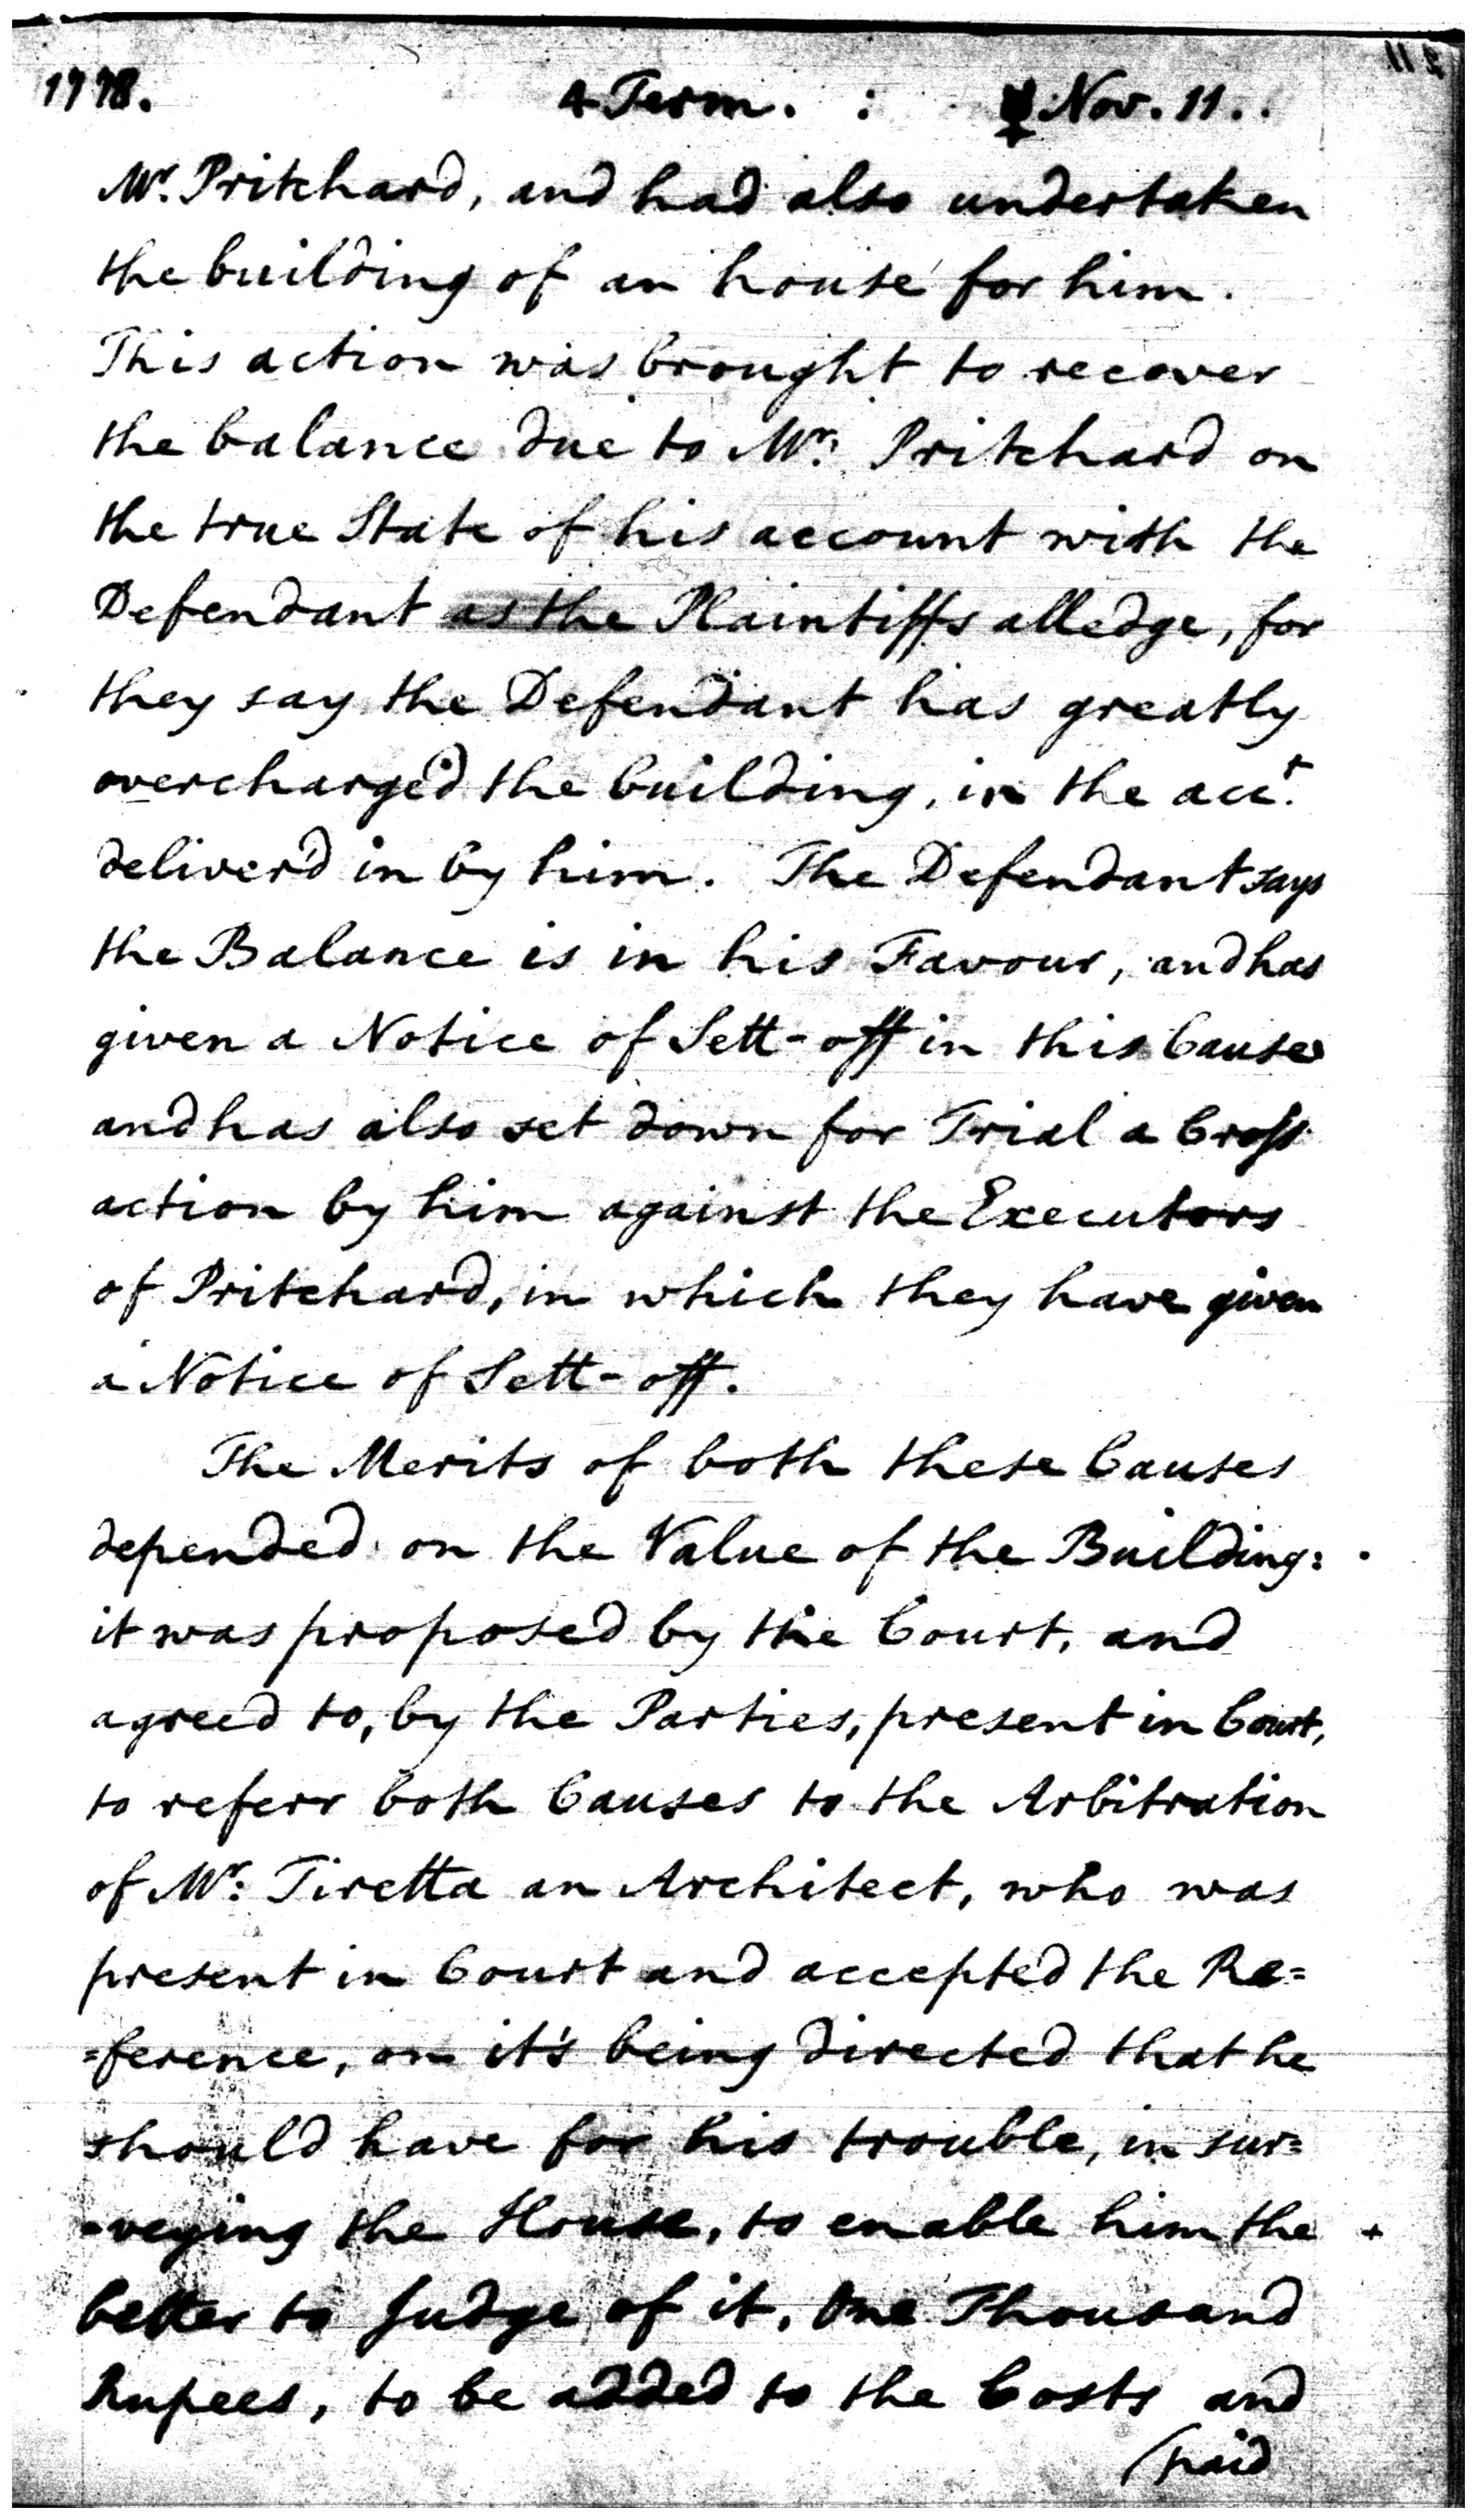 1778. 4 Term. : ☿ Nov. 11..
Mr. Pritchard, and had also undertaken
the building of an house for him.
This action was brought to recover
the balance due to Mr: Pritchard on
the true State of his account with the
Defendant as the Plaintiffs alledge, for
they say the Defendant has greatly
overcharge'd the building, in the acct.
deliver'd in by him. The Defendant says
the Balance is in his Favour, and has
given a Notice of Sett-off in this Cause
and has also set down for Trial a Cross
action by him against the Executors
of Pritchard, in which they have given
a Notice of Sett-off.
The Merits of both these Causes
depended on the Value of the Building:
it was proposed by the Court, and
agreed to, by the Parties, present in Court,
to referr both Causes to the Arbitration
of Mr: Tiretta an Architect, who was
present in Court and accepted the Re=
=ference, on it's being directed that he
should have for his trouble, in sur=
=veying the House, to enable him the +
better to Judge of it, One Thousand
Rupees, to be added to the Costs and
(paid